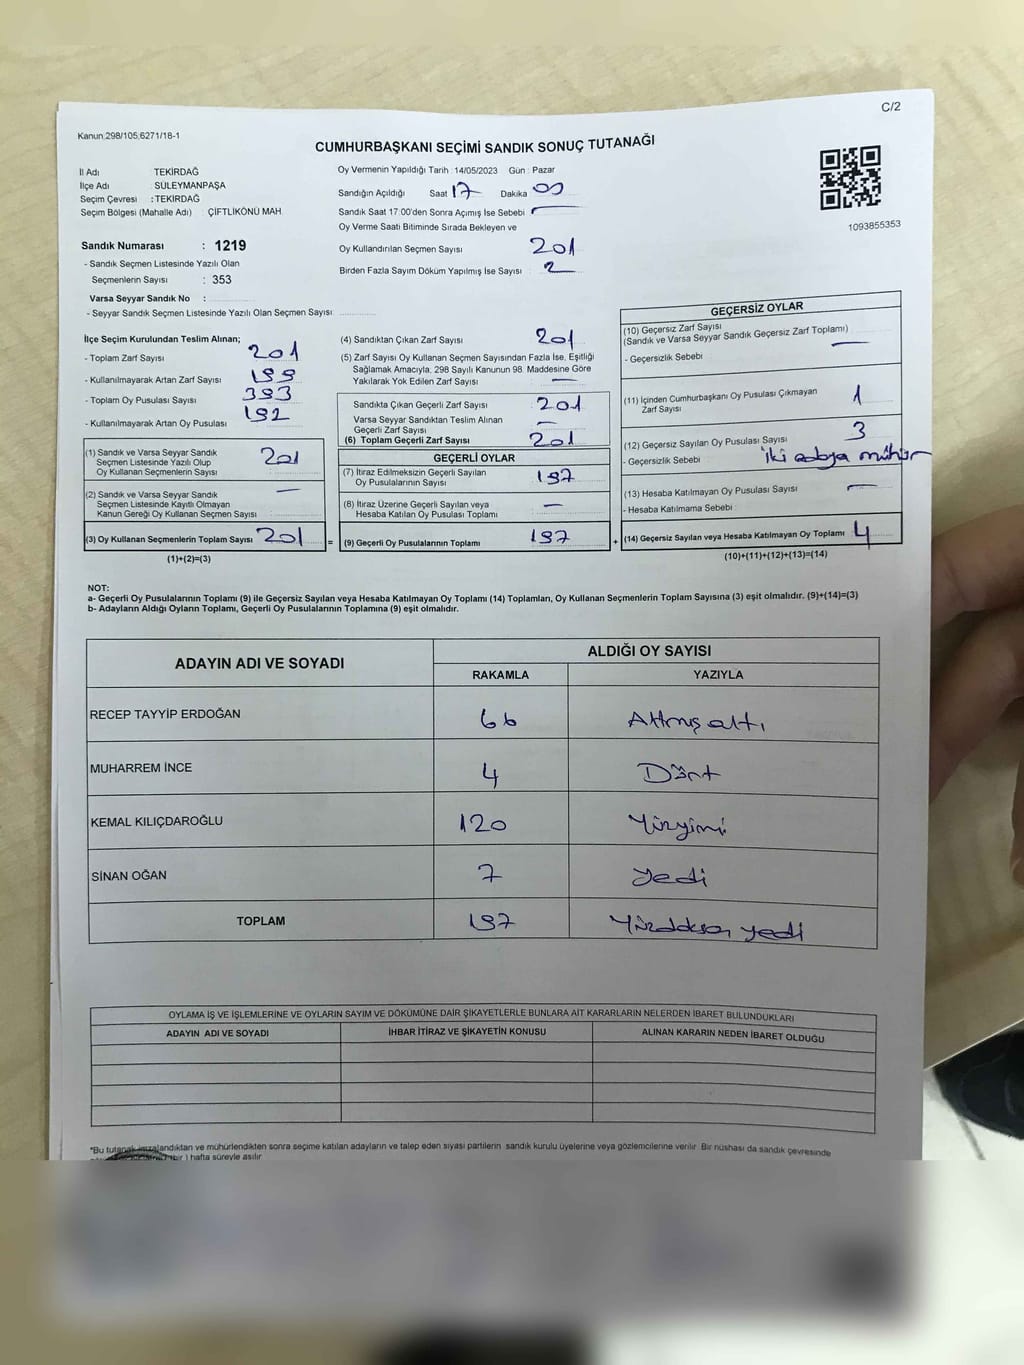 C/2
Kanun:298/105;6271/18-1
CUMHURBAŞKANI SEÇİMİ SANDIK SONUÇ TUTANAĞI
İl Adı TEKİRDAĞ
İlçe Adı SÜLEYMANPAŞA
Seçim Çevresi : TEKİRDAĞ
Seçim Bölgesi (Mahalle Adı) : ÇİFTLİKÖNÜ MAH.
Oy Vermenin Yapıldığı Tarih :14/05/2023 Gün : Pazar
Sandığın Açıldığı Saat 17 Dakika 00
Sandık Saat 17:00'den Sonra Açımış İse Sebebi
Oy Verme Saati Bitiminde Sırada Bekleyen ve
Oy Kullandırılan Seçmen Sayısı 201
Birden Fazla Sayım Döküm Yapılmış İse Sayısı 2
1093855353
Sandık Numarası : 1219
- Sandık Seçmen Listesinde Yazılı Olan
Seçmenlerin Sayısı : 353
Varsa Seyyar Sandık No :
- Seyyar Sandık Seçmen Listesinde Yazılı Olan Seçmen Sayısı:
İlçe Seçim Kurulundan Teslim Alınan;
- Toplam Zarf Sayısı 201
- Kullanılmayarak Artan Zarf Sayısı 199
- Toplam Oy Pusulası Sayısı 393
- Kullanılmayarak Artan Oy Pusulası 192
(1) Sandık ve Varsa Seyyar Sandık
Seçmen Listesinde Yazılı Olup
Oy Kullanan Seçmenlerin Sayısı 201
(2) Sandık ve Varsa Seyyar Sandık
Seçmen Listesinde Kayıtlı Olmayan
Kanun Gereği Oy Kullanan Seçmen Sayısı —
(3) Oy Kullanan Seçmenlerin Toplam Sayısı 201 =
(1)+(2)=(3)
(4) Sandıktan Çıkan Zarf Sayısı 201
(5) Zarf Sayısı Oy Kullanan Seçmen Sayısından Fazla İse, Eşitliği
Sağlamak Amacıyla, 298 Sayılı Kanunun 98. Maddesine Göre
Yakılarak Yok Edilen Zarf Sayısı —
Sandıkta Çıkan Geçerli Zarf Sayısı 201
Varsa Seyyar Sandıktan Teslim Alınan
Geçerli Zarf Sayısı —
(6) Toplam Geçerli Zarf Sayısı 201
GEÇERLİ OYLAR
(7) İtiraz Edilmeksizin Geçerli Sayılan
Oy Pusulalarının Sayısı 197
(8) İtiraz Üzerine Geçerli Sayılan veya
Hesaba Katılan Oy Pusulası Toplamı —
(9) Geçerli Oy Pusulalarının Toplamı 197 +
GEÇERSİZ OYLAR
(10) Geçersiz Zarf Sayısı
(Sandık ve Varsa Seyyar Sandık Geçersiz Zarf Toplamı) —
- Geçersizlik Sebebi
(11) İçinden Cumhurbaşkanı Oy Pusulası Çıkmayan
Zarf Sayısı 1
(12) Geçersiz Sayılan Oy Pusulası Sayısı 3
- Geçersizlik Sebebi iki adaya mühür
(13) Hesaba Katılmayan Oy Pusulası Sayısı —
- Hesaba Katılmama Sebebi :
(14) Geçersiz Sayılan veya Hesaba Katılmayan Oy Toplamı 4
(10)+(11)+(12)+(13)=(14)
NOT:
a- Geçerli Oy Pusulalarının Toplamı (9) ile Geçersiz Sayılan veya Hesaba Katılmayan Oy Toplamı (14) Toplamları, Oy Kullanan Seçmenlerin Toplam Sayısına (3) eşit olmalıdır. (9)+(14)=(3)
b- Adayların Aldığı Oyların Toplamı, Geçerli Oy Pusulalarının Toplamına (9) eşit olmalıdır.
ADAYIN ADI VE SOYADI ALDIĞI OY SAYISI
RAKAMLA YAZIYLA
RECEP TAYYİP ERDOĞAN 66 Altmış altı
MUHARREM İNCE 4 Dört
KEMAL KILIÇDAROĞLU 120 Yüzyirmi
SİNAN OĞAN 7 Yedi
TOPLAM 197 yedi
OYLAMA İŞ VE İŞLEMLERİNE VE OYLARIN SAYIM VE DÖKÜMÜNE DAİR ŞİKAYETLERLE BUNLARA AİT KARARLARIN NELERDEN İBARET BULUNDUKLARI
ADAYIN ADI VE SOYADI İHBAR İTİRAZ VE ŞİKAYETİN KONUSU ALINAN KARARIN NEDEN İBARET OLDUĞU
*Bu tutanak imzalandıktan ve mühürlendikten sonra seçime katılan adayların ve talep eden siyasi partilerin sandık kurulu üyelerine veya gözlemcilerine verilir. Bir nüshası da sandık çevresinde
hafta süreyle asılır.